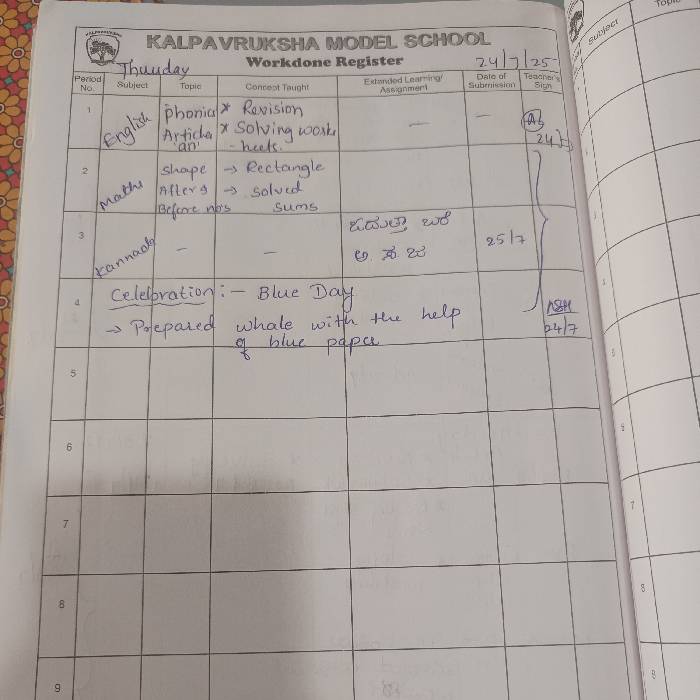 KALPAVRUKSHA MODEL SCHOOL
Workdone Register
24/7/25
Period No. Subject Topic Concept Taught Extended Learning/ Assignment Date of Submission Teacher's Sign
1 English Phonics * Revision — —
Article * Solving works
'an' -heets.
24/7
2 Maths Shape → Rectangle
After & → Solved
Before no's Sums
3 Kannada — — 25/7
4 Celebration :- Blue Day
→ Prepared whale with the help
of blue paper
24/7
5
6
7
8
9
Subject Topic
5
7
8